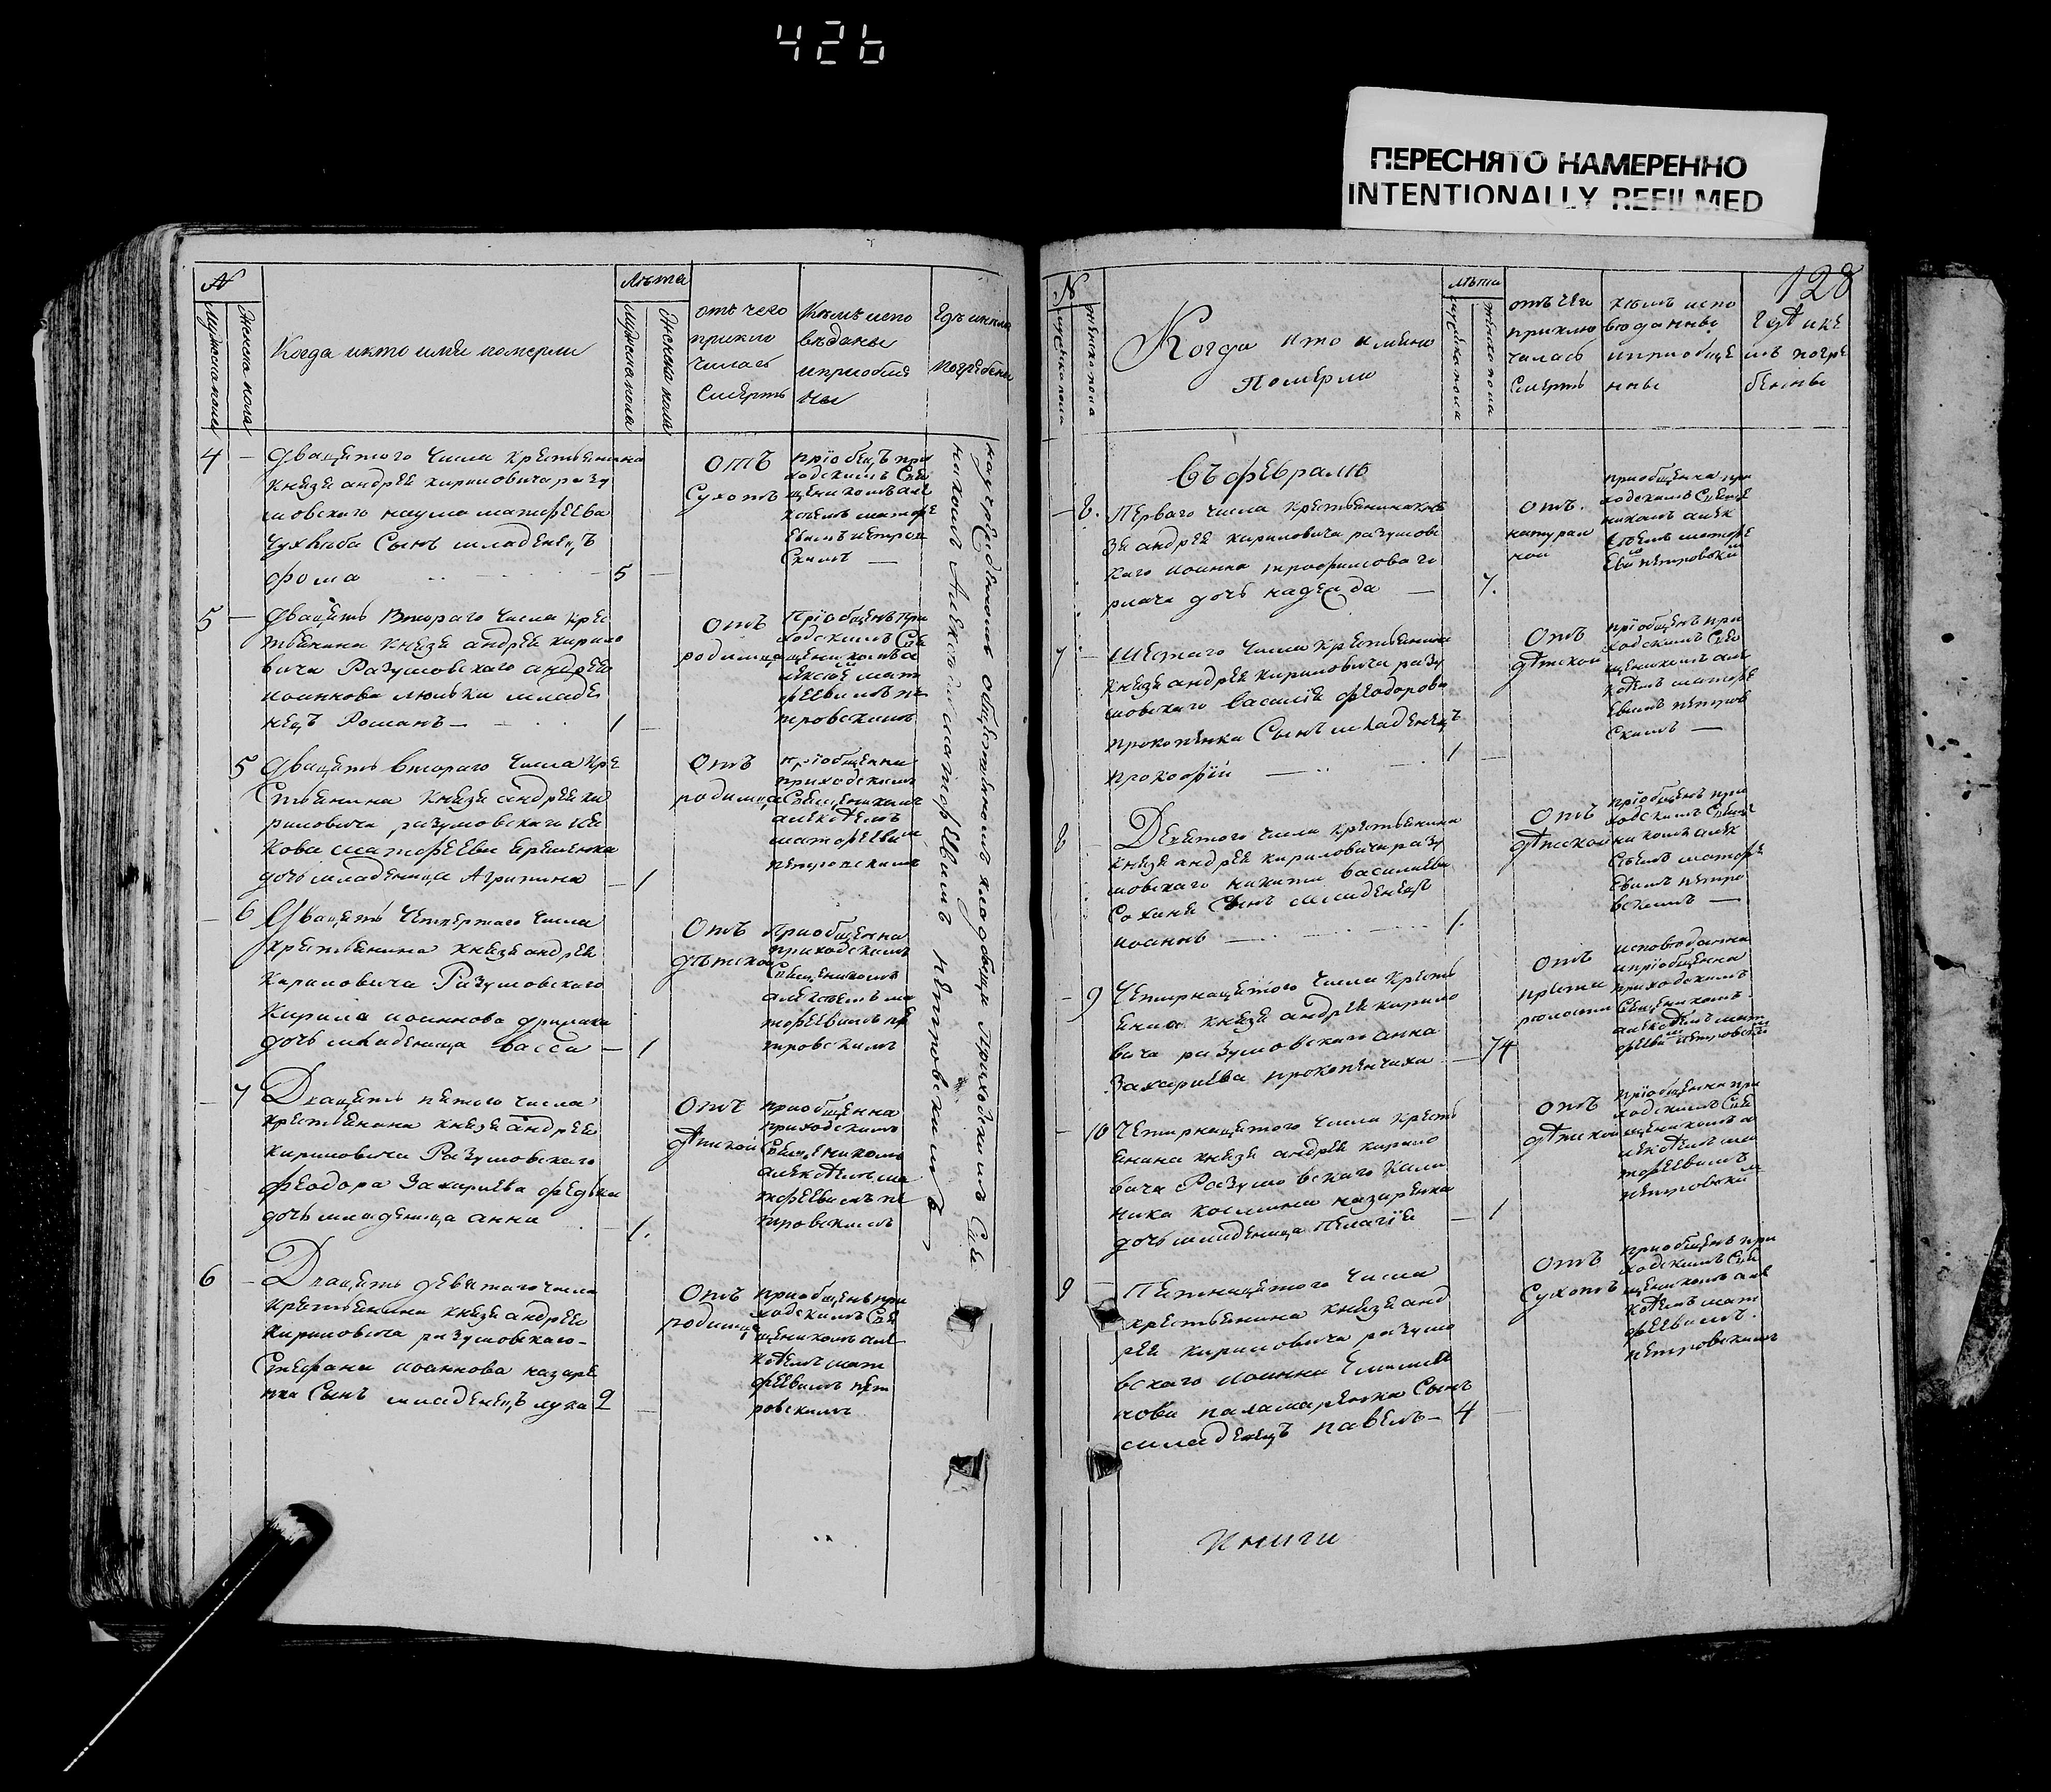 426
ПЕРЕСНЯТО НАМЕРЕННО
INTENTIONALLY REFILMED
№
Мужеска пола
Женска пола
Когда и кто имян померли
Лѣта
Мужеска полы
Женска пола
отъ чего
приклю
чилась
Смерть
Кѣмъ испо
вѣданы
и приобще
ны
Где и кемъ
погребены
4 — Дватцятого Числа Крестьянина
Князя андрея кириловича разу
мовского наума матфеева
Сынъ младенецъ
фома — 5 —
отъ
Сухотъ
пріобщ. при
ходскимъ Свя
щеникомъ але
ксѣемъ матфе
евымъ петров
скимъ —
5 — Дватцять Втораго Числа Крес
тьянина Князя андрея кирило
вича Разумовского андрея
иоаннова люльки младе
нецъ Романъ — 1 —
отъ
родимца
Пріобщенъ При
ходскимъ Свя
щеникомъ а
лексіемъ мат
феевымъ пе
тровскимъ
5 Дватцять втораго Числа Кре
стьянина Князя андрея ки
риловича разумовского Iя
кова матфеева Еременка
дочь младеница Агрипина — 1
отъ
родимца
пріобщенна
приходскимъ
Священикомъ
алексѣемъ
матфеевым
петровскимъ
— 6 Дватцять Четвертаго Числа
крестьянина князя андрея
Кириловича Разумовского
Кирила иоаннова
дочь младеница васса — 1
отъ
дѣтской
Приобщенна
приходскимъ
Священикомъ
алексѣемъ ма
тфеевымъ пе
тровскимъ
— 7 Дватцять пятого числа
крестьянина князя андрея
Кириловича Разумовского
феодора Захариева федька
дочь младеница анна — 1.
отъ
дѣтской
приобщенна
приходскимъ
Священикомъ
алексѣемъ ма
тфеевымъ пе
тровскимъ
6 — Дватцять девятого числа
крестьянина князя андрея
Кириловича разумовского
Стефана иоаннова назаре
нка Сынъ младенецъ лука 2 —
отъ
родимца
приобщенъ при
ходскимъ Свя
щеникомъ але
ксѣемъ мат
феевымъ пет
ровскимъ
на учрежденномъ общественномъ кладбищи Приходскимъ Свя
никомъ Алексѣемъ матфеевымъ петровскимъ
№
женска пола
Когда кто имяно
Померли
лѣта
женска пола
отъ чего
приклю
чилась
Смерть
кѣмъ испо
веданны
и приобще
нны
гдѣ и ке
мъ погре
бенны
128
Въ февралѣ
— 8. Перваго числа крестьянина кня
зя андрея кириловича разумовс
каго иоанна трофимова
дочь надежда — 7.
отъ
натурал
ной
приобщенна при
ходскимъ Свяще
никомъ алек
сѣемъ матфе
евым петровским
7 — Шестаго Числа Крестьянина
князя андрея кириловича разу
мовского василія феодорова
прокопенка Сынъ младенецъ
прокофій — 1 —
отъ
дѣтской
пріобщенъ при
ходскимъ Свя
щеникомъ але
ксѣемъ матфе
евымъ петров
скимъ —
8 — Девятого числа крестьянина
князя андрея кириловича разу
мовского никиты василиева
Сынъ младенецъ
иоаннъ — 1.
отъ
дѣтской
пріобщенъ при
ходскимъ Свяще
никомъ алек
сѣемъ матфе
евымъ петро
вскимъ —
— 9 Четырнацятого числа Кресть
янина князя андрея кирило
вича разумовского анна
Захариева прокопенчиха — 74
отъ
исповѣданна
и пріобщенна
приходскимъ
Священикомъ
алексѣемъ мат
феевым петровским
— 10 Четырнацятого числа кресть
янина князя андрея кирило
вича Разумовского Кали
ника козмина назаренка
дочь младеница Пелагія — 1
отъ
дѣтской
пріобщенна при
ходскимъ Свя
щеникомъ а
лексѣемъ ма
тфеевымъ
петровским
9 — Пятнацятого числа
крестьянина князя анд
рея кириловича разумо
вского иоанна Емилия
нова паламаренка Сынъ
младенецъ павелъ — 4 —
отъ
Сухотъ
приобщенъ при
ходскимъ Свя
щеникомъ але
ксѣемъ мат
феевымъ
петровскимъ
книги